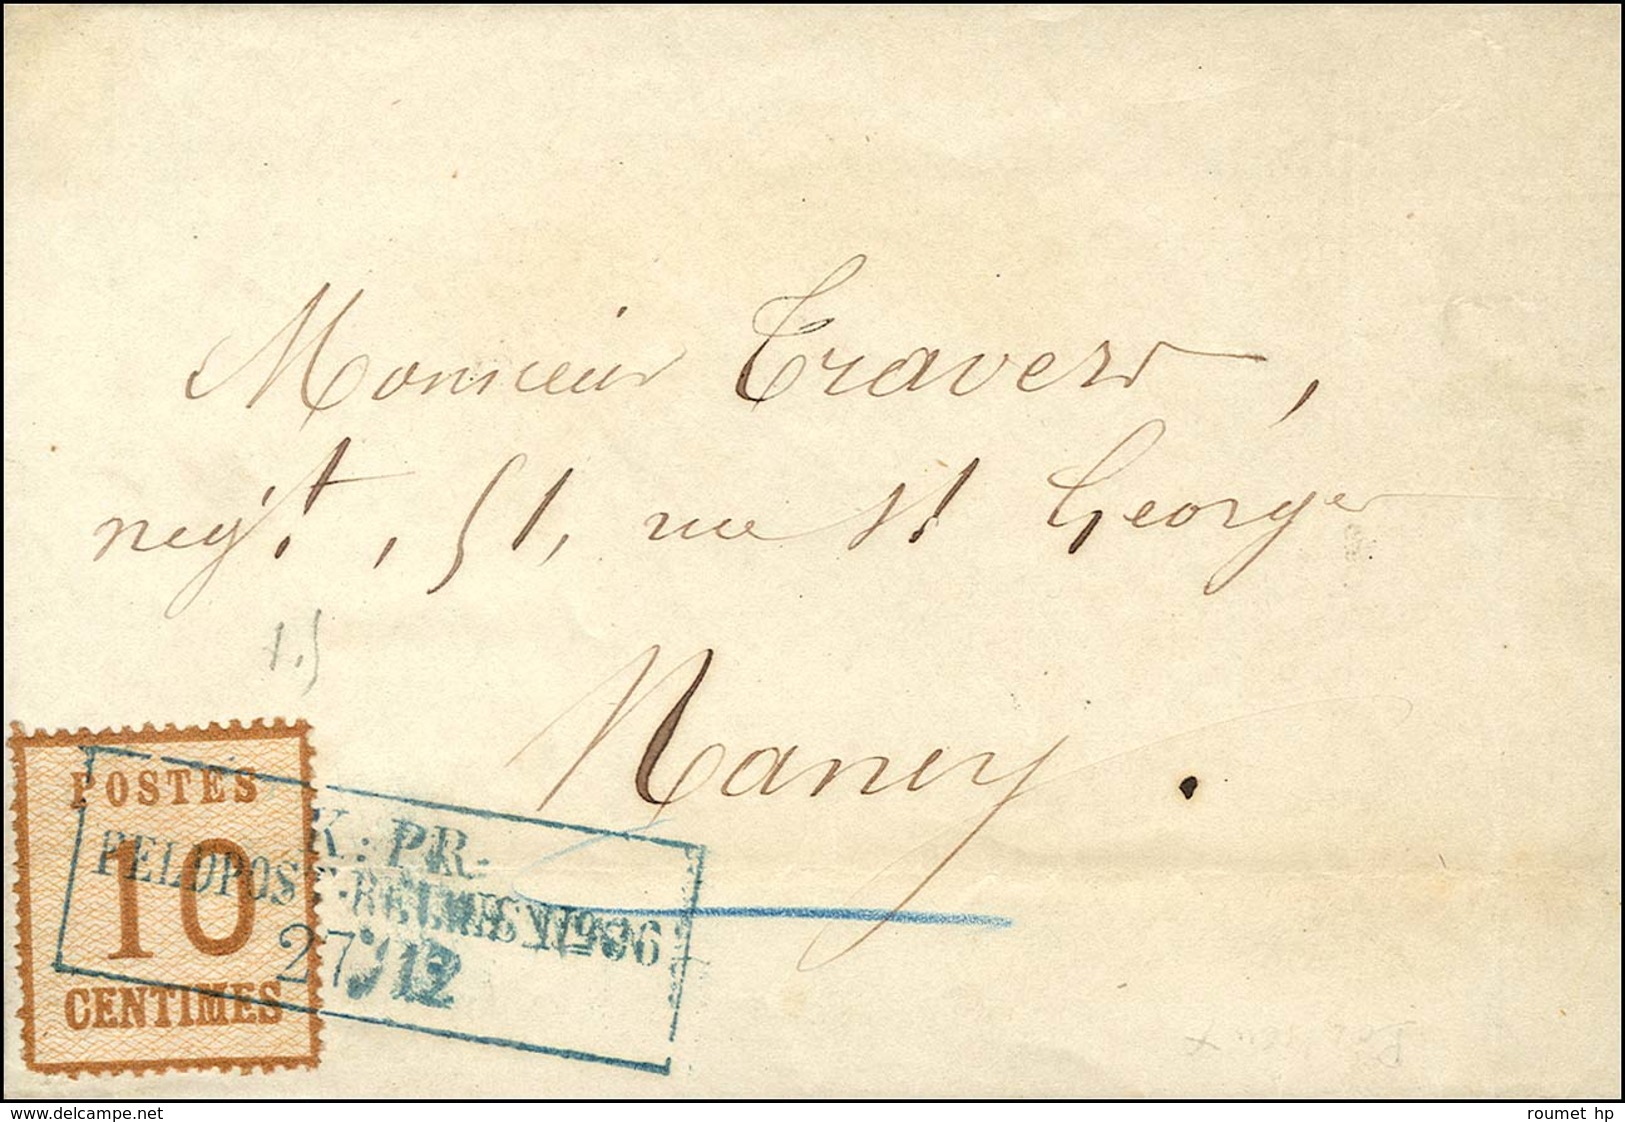 Monsieur Travers,
neg.t, 51, rue St George
1.5
Nancy.
POSTES
10
CENTIMES
K. PR.
FELDPOST-RELAIS N°
27 12
www.delcampe.net
roumet hp